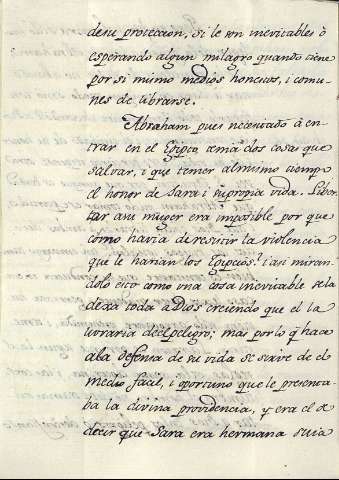 de su proteccion, si le son inevitables ò
esperando algun milagro quando tiene
por si mismo medios honestos, i comu-
nes de librarse.
Abraham pues necesitado à en-
trar en el Egipto tenia dos cosas que
salvar, i que temer al mismo tiempo
el honor de Sara i su propia vida. Liber-
tar a su muger era imposible por que
como havia de resistir la violencia
que le harian los Egipcios? i asi miran-
dolo esto como una cosa inevitable se la
dexa toda a Dios creiendo que el la
libraria del peligro; mas por lo q̃ hace
a la defensa de su vida se sirve de el
medio facil, i oportuno que le presenta-
ba la divina providencia, y era el de
decir que Sara era hermana suia